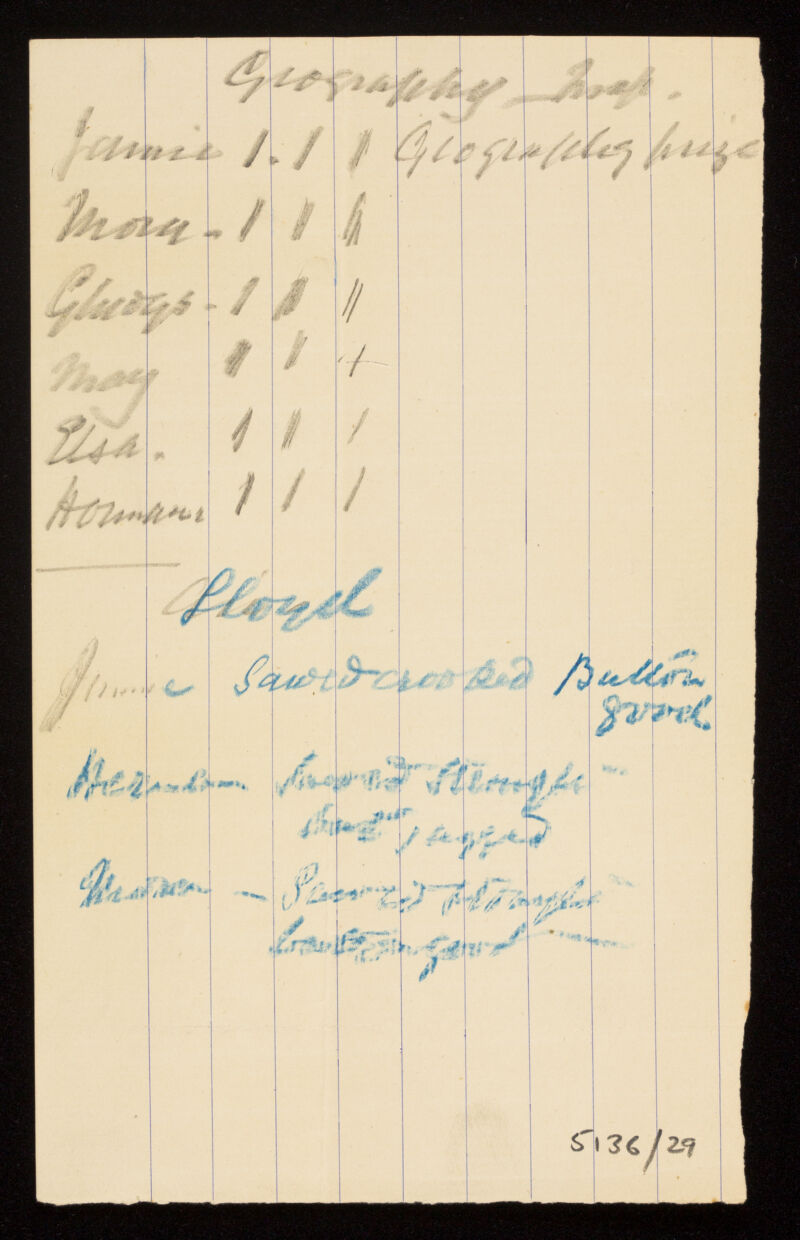 Geography Map.
Jamie 1. 1 11 Geography prize
Mora - 1 11
Gladys - 1 11 11
May 11 1 +
Elsa. 1 11 1
Herman 1 1 1
Sloyd
Jamie Sawed crooked Button
good
Herman Sawed straight
but jagged
Sawed straight
button good
5136/29